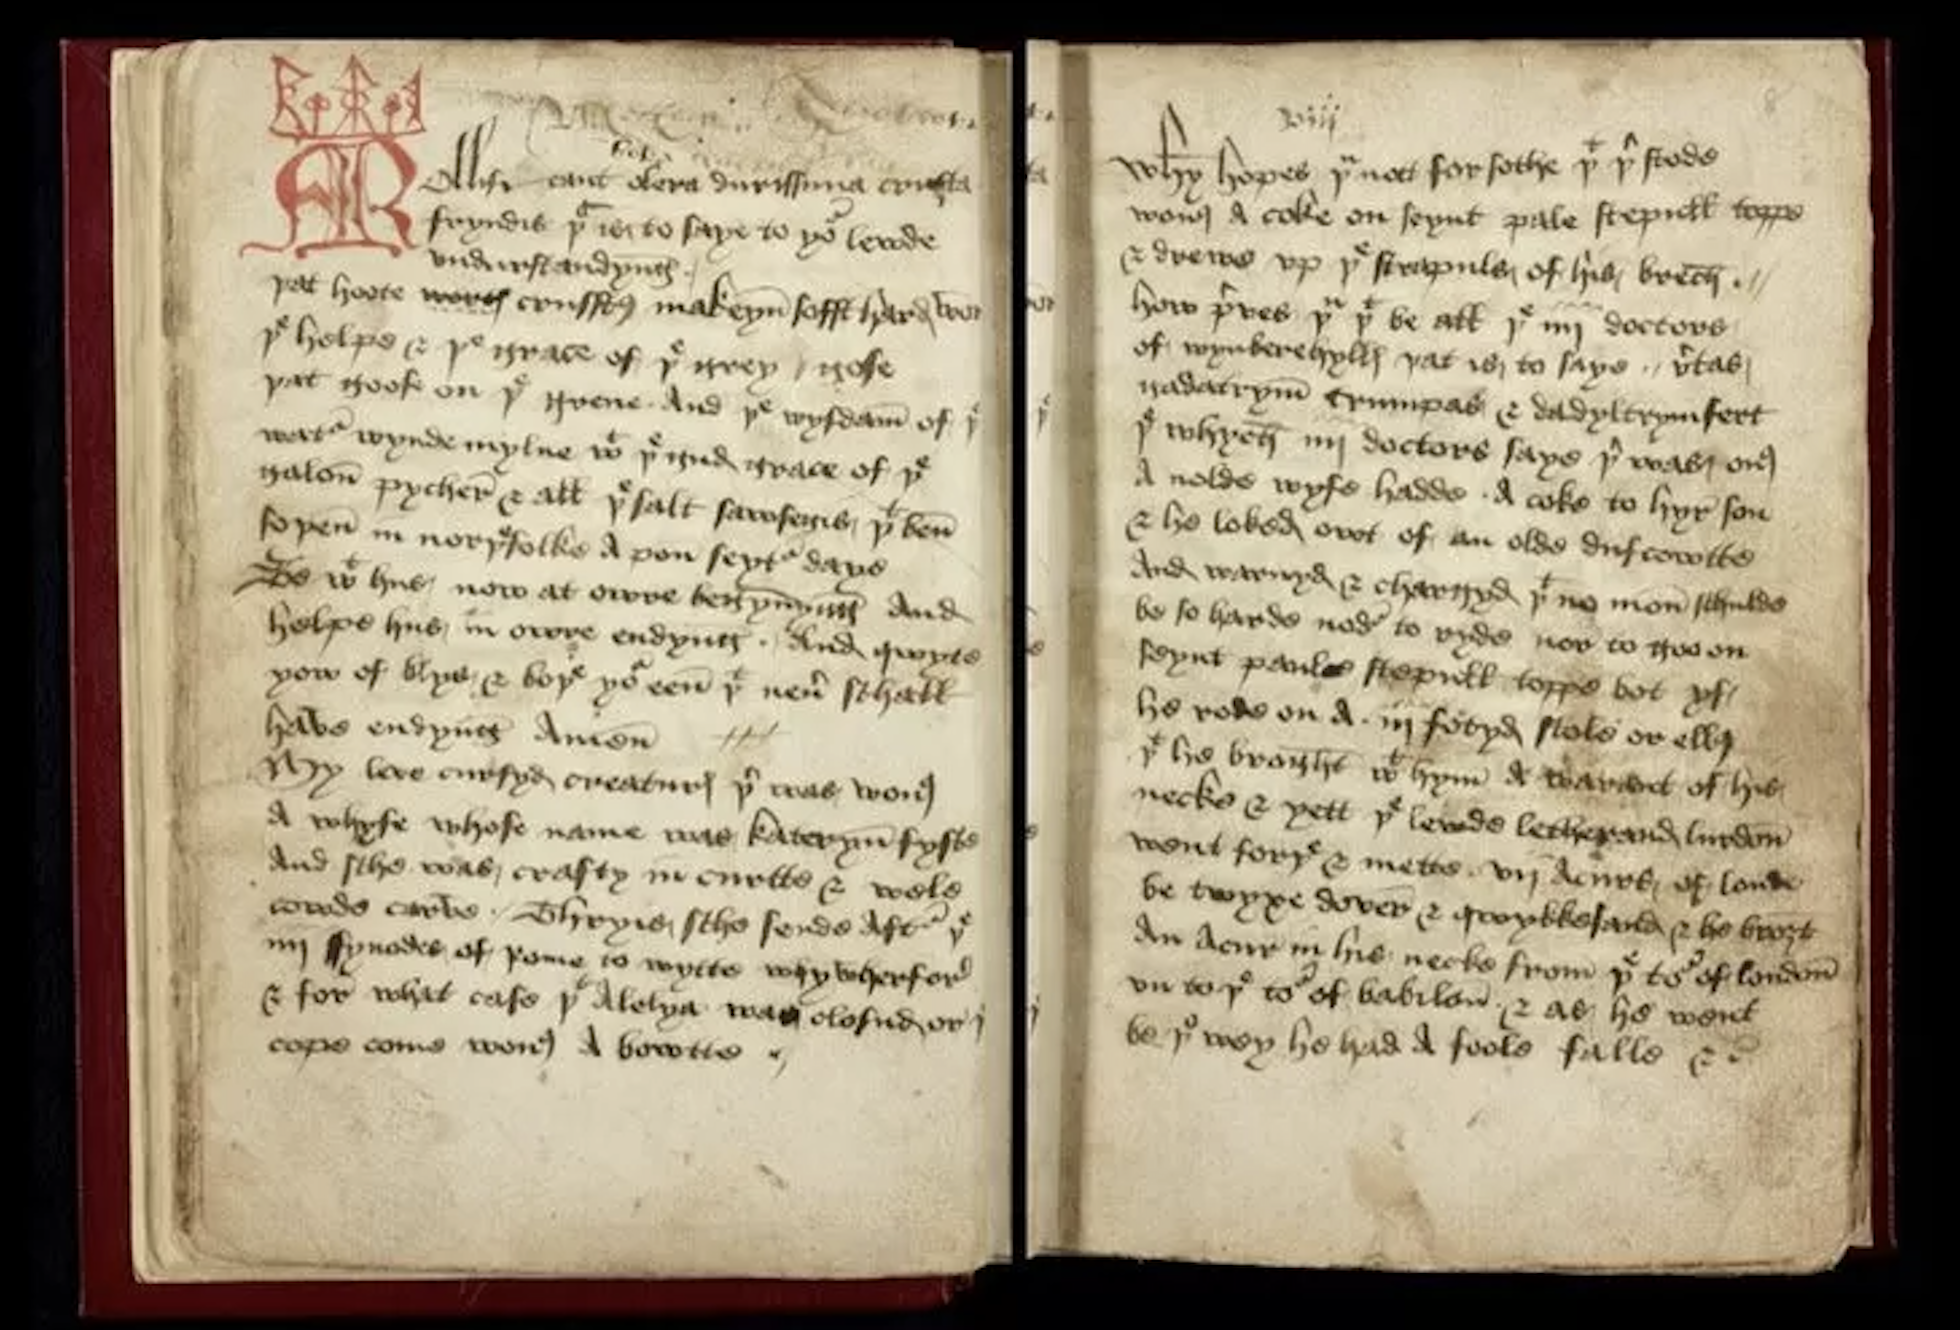 Mollificant olera durissima crusta
fryndis þt is to saye to yor lewde
undurstandyng
þat hoote crusst makeyn sofft hard wor
þe helpe & þe grace of þe grey gose
þat goose on þe grene And þe wysdam of þe
wat wynde mylne wt þe gud grace of þe
galon pycher & all þe salt sawsegis þt ben
sopen in norþe folke A pon seyt days
Be wt hus now at owre begynnyng And
helpe hus in owre endyng And qwyte
yow of blys & boþe yor een þt neuer schall
have endyng Amen
My leve cursyd creaturs þer was wons
A whyfe whose name was kateryn fyste
And sche was crafty in curtte & wele
cowde carve Thryis sche sende Aftr þe
iiij synodes of rome to wytte why wherfor
& for what case þt Alelya was closud or þe
cope come wons A bowtte
viij
Why hopes þu nott for sothe þt þer stode
wons A coke on seynt pale stepull toppe
& drewe vp þe strapuls of his brech
how preves þu þt be all þe iiij doctors
of wynberehyllis þat is to saye vertas
gadatrym trumpas & dadyltrymsert
þe whych iiij doctors saye þer was ons
A nolde wyfe hadde A coke to hyr son
& he loked owt of an olde dufcowtte
And warnyd & chargyd þt no mon schulde
be so harde nodr to ryde nor to goo on
seynt paule stepull toppe bot yf
he rode on A iij fotyd stole or ellis
þt he broght wt hym A warant of his
necke & yett þe lewde letherand lurdon
went forþe & mette vij Acurs of londe
be twyxe dover & qwykkesand & he broght
An Acur in his necke from þe tor of london
vn to þe tor of babilon & as he went
be þe wey he had A foole falle &